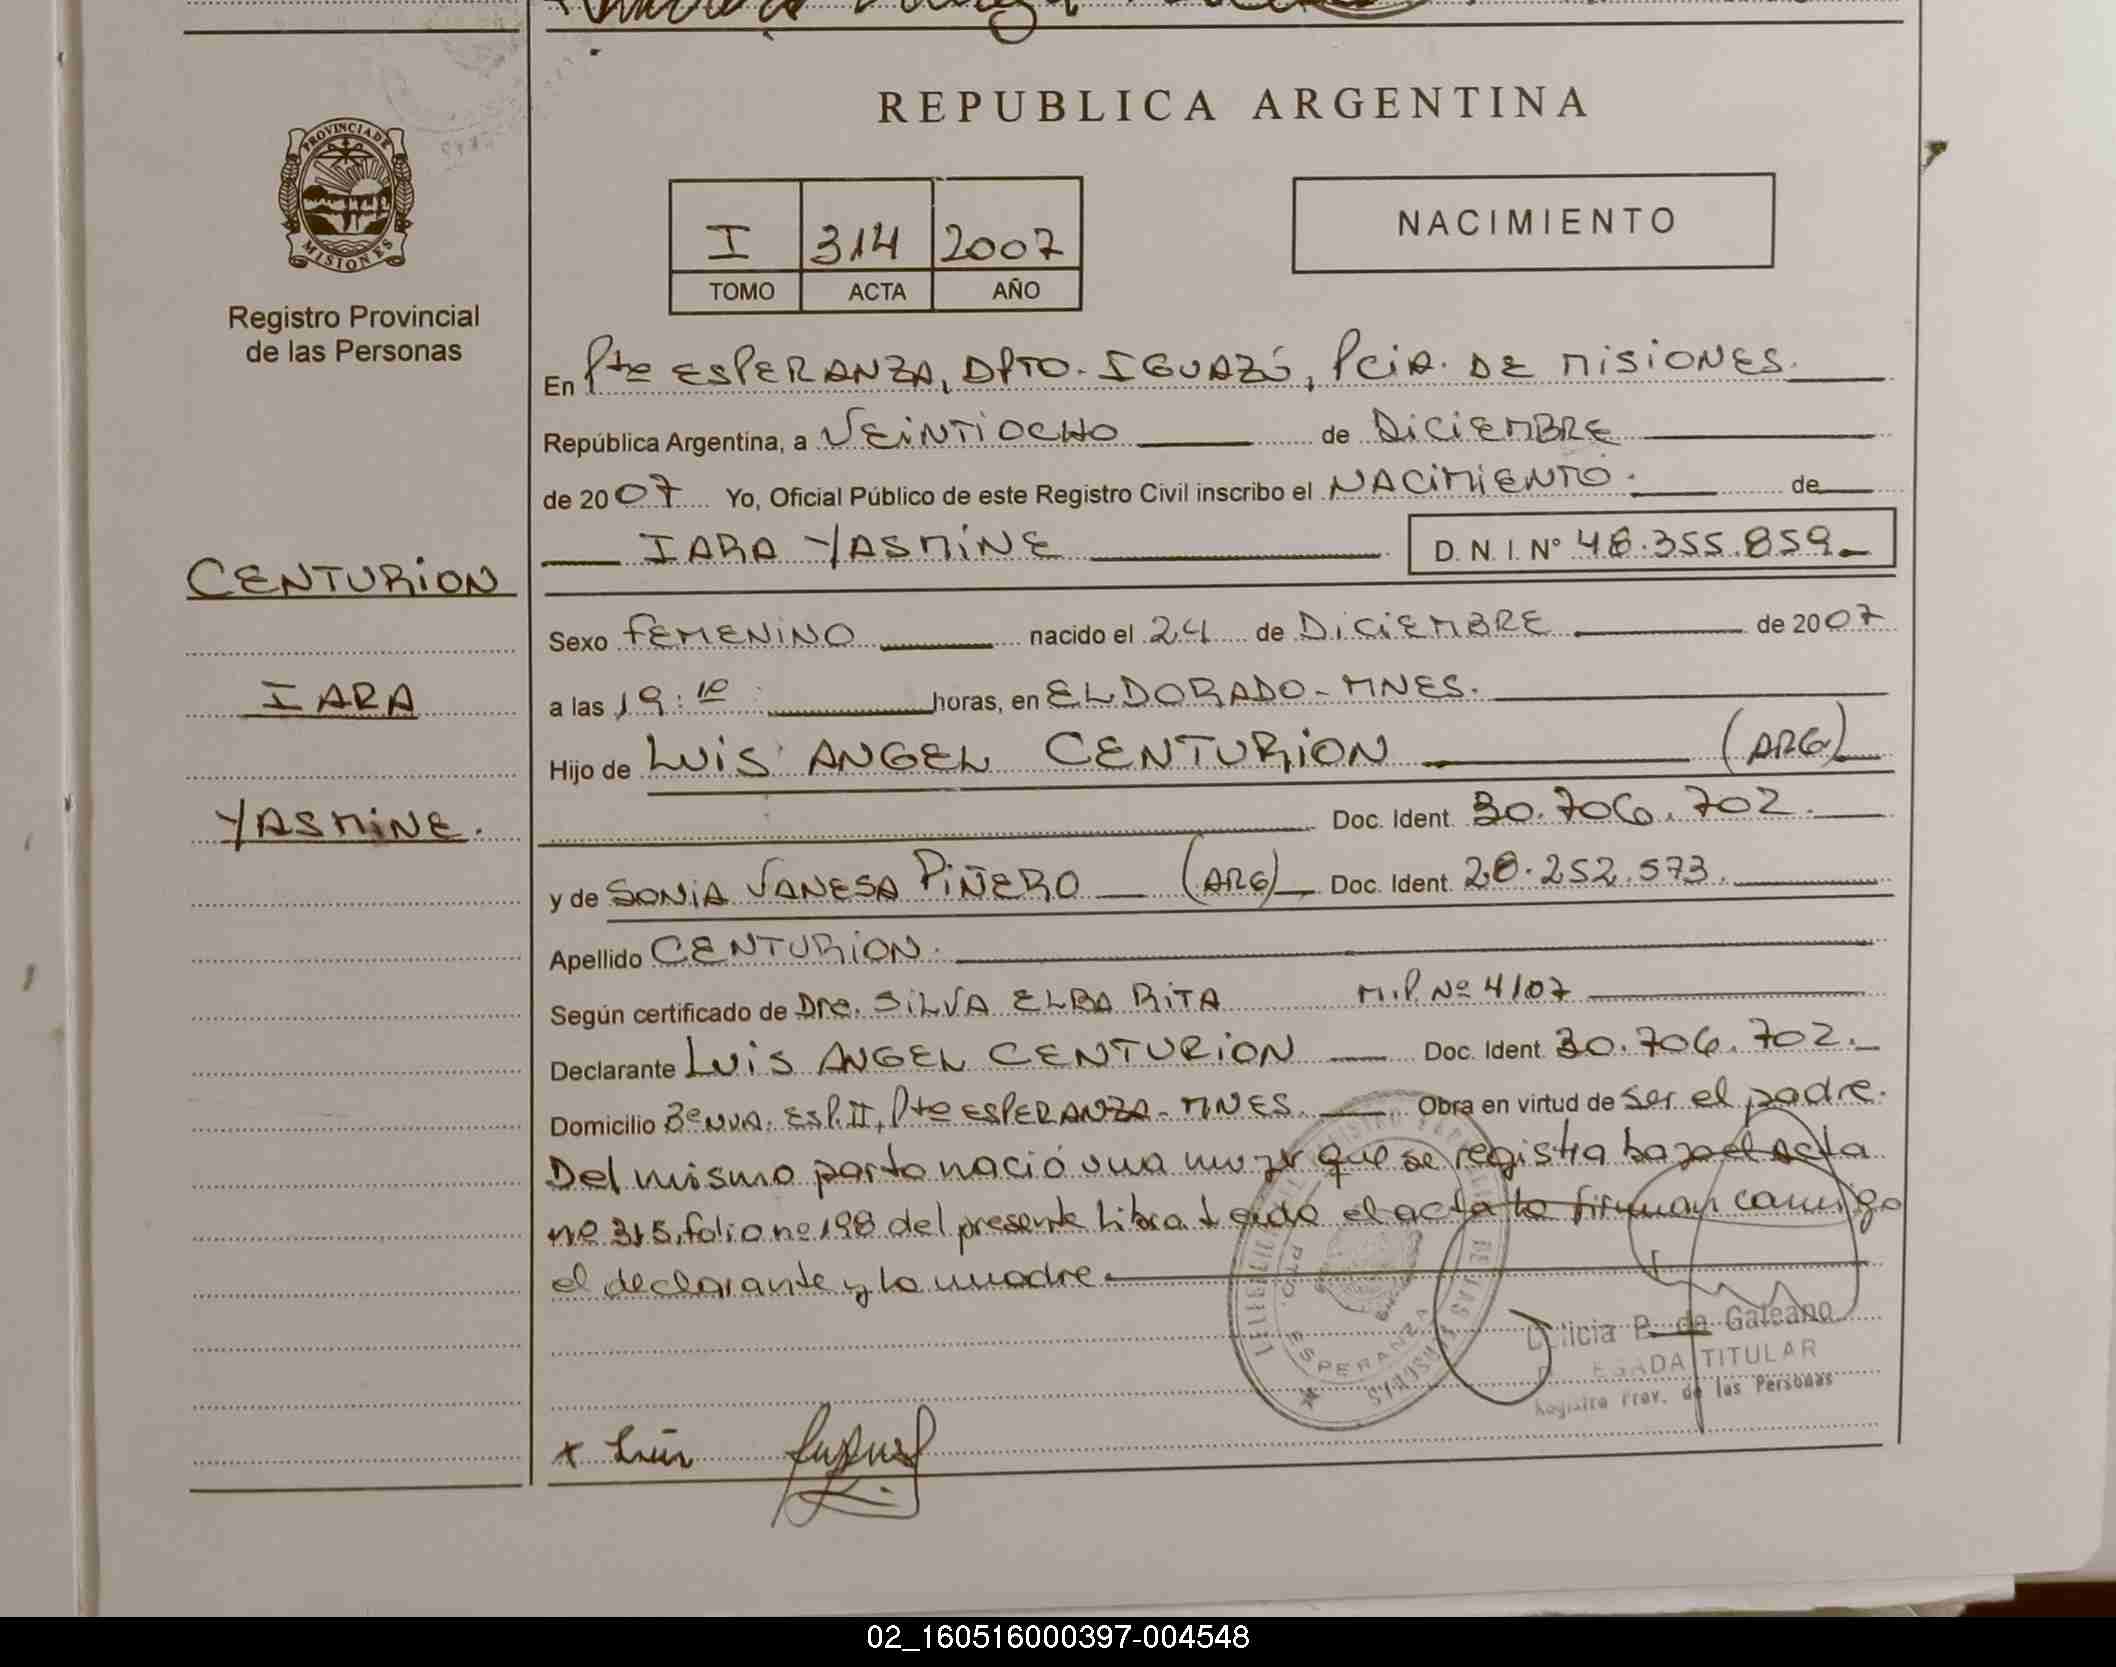 REPUBLICA ARGENTINA
PROVINCIA DE
MISIONES
Registro Provincial
de las Personas
I 314 2007
TOMO ACTA AÑO
NACIMIENTO
En Pto ESPERANZA, DPTO. IGUAZÚ, PCiA. DE MiSiONES.
República Argentina, a VEiNTiOCHO de DiCiEMBRE
de 2007 Yo, Oficial Público de este Registro Civil inscribo el NACiMiENTO. de
IARA YASMiNE D.N.I. Nº 48.355.859
CENTURiON
IARA
YASMiNE.
Sexo FEMENiNO nacido el 24 de DiCiEMBRE de 2007
a las 19:10 horas, en ELDORADO - MNES.
Hijo de LUiS ANGEL CENTURiON (ARG)
Doc. Ident. 30.706.702.
y de SONiA VANESA PiÑERO (ARG) Doc. Ident. 28.252.573.
Apellido CENTURiON.
Según certificado de Dra. SiLVA ELBA RiTA M.P. Nº 4107
Declarante LUiS ANGEL CENTURiON Doc. Ident. 30.706.702.
Domicilio ESP. II, Pto ESPERANZA - MNES. Obra en virtud de ser el padre.
Del mismo parto nació una mujer que se registra bajo el acta
nº 315, folio nº 198 del presente Libro. Leida el acta la firman conmigo
el declarante y la madre.
PTO. ESPERANZA
P. de Galeano
TITULAR
Registro Prov. de las Personas
x Luis
02_160516000397-004548